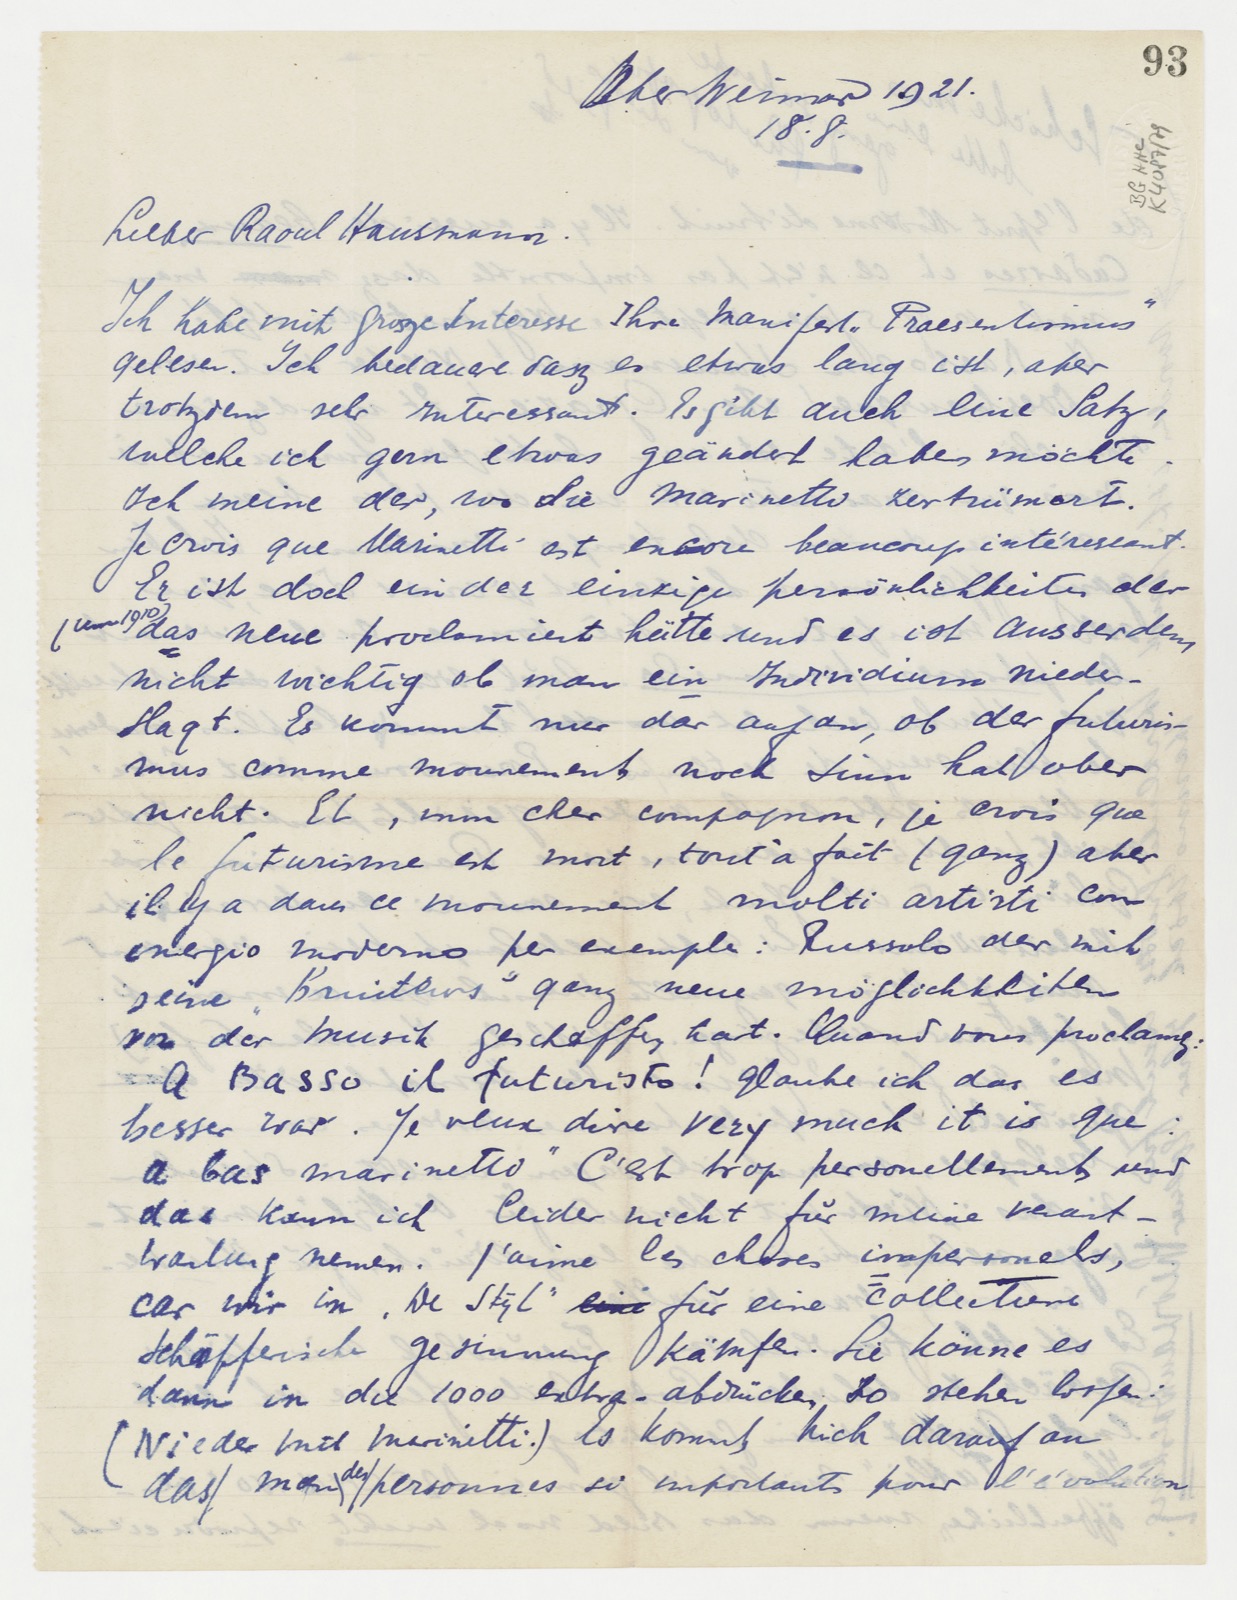 93
Ober Weimar 1921.
18.8.
BG HHC
K 4087/79
Lieber Raoul Hausmann.
Ich habe mit grosze Interesse Ihre Manifest „Praesentismus"
gelesen. Ich bedauere dasz es etwas lang ist, aber
trotzdem sehr interessant. Es gibt auch eine Satz,
welche ich gern etwas geändert haben möchte.
Ich meine der, wo Sie Marinetti zertrümert.
Je crois que Marinetti est encore beaucoup intéressant.
Er ist doch ein der einzige persönlichkeiten der
(um 1910)
das neue proclamiert hätte und es ist ausserdem
nicht wichtig ob man ein Individium nieder-
slagt. Es kommt nur dar auf an, ob der futuris-
mus comme mouvement noch Sinn hat ober
nicht. Et, mon cher compagnon, je crois que
le futurisme est mort, tout à fait (ganz) aber
il y a dans ce mouvement molti artisti con
energio moderno per exemple: Russolo der mit
seine „Bruiteurs" ganz neue möglichkeiten
von der Musik geschaffen hat. Quand vous proclamez:
A Basso il futuristo! glaube ich das es
besser war. Je veux dire very much it is que:
a bas marinetti" C'est trop personellement und
das kann ich leider nicht für meine verant-
wortung nemen. J'aime les choses impersonels,
car wir in „De Stÿl" für eine Collective
schöpferische gesinnung kämfen. Sie könne es
dann in die 1000 extra-abdrücken so stehen lassen:
(Nieder mit Marinetti.) Es kommt nich darauf an
das man des personnes si importants pour l'évolution